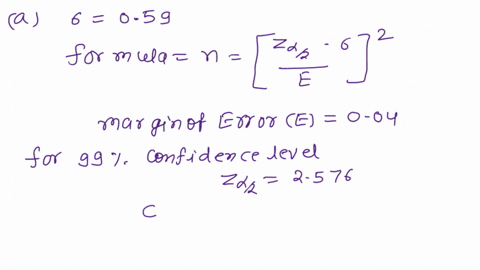 (a) 6 = 0.59
formula = n = [Zα/2 · 6 / E]²
margin of Error (E) = 0.04
for 99% confidence level
Zα/2 = 2.576
C